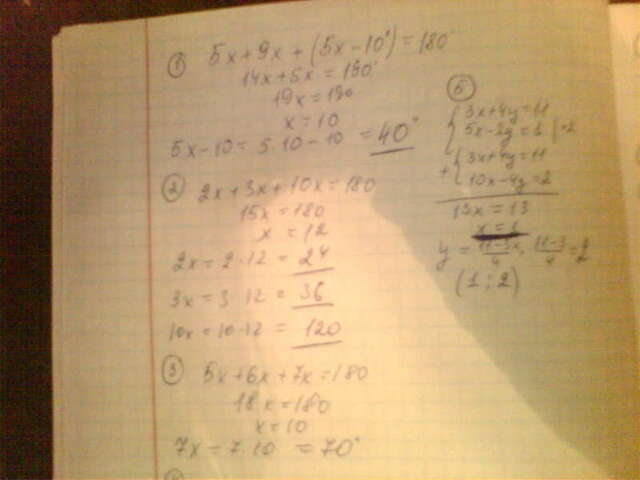 1
5x+9x+(5x-10°)=180°
14x+5x=190°
19x=190
x=10
5x-10=5·10-10=40°
2
2x+3x+10x=180
15x=180
x=12
2x=2·12=24
3x=3·12=36
10x=10·12=120
3
5x+6x+7x=180
18x=180
x=10
7x=7·10=70°
5
3x+4y=11
5x-2y=1 |·2
3x+4y=11
+
10x-4y=2
13x=13
x=1
y=11-3x/4, 11-3/4=2
(1;2)